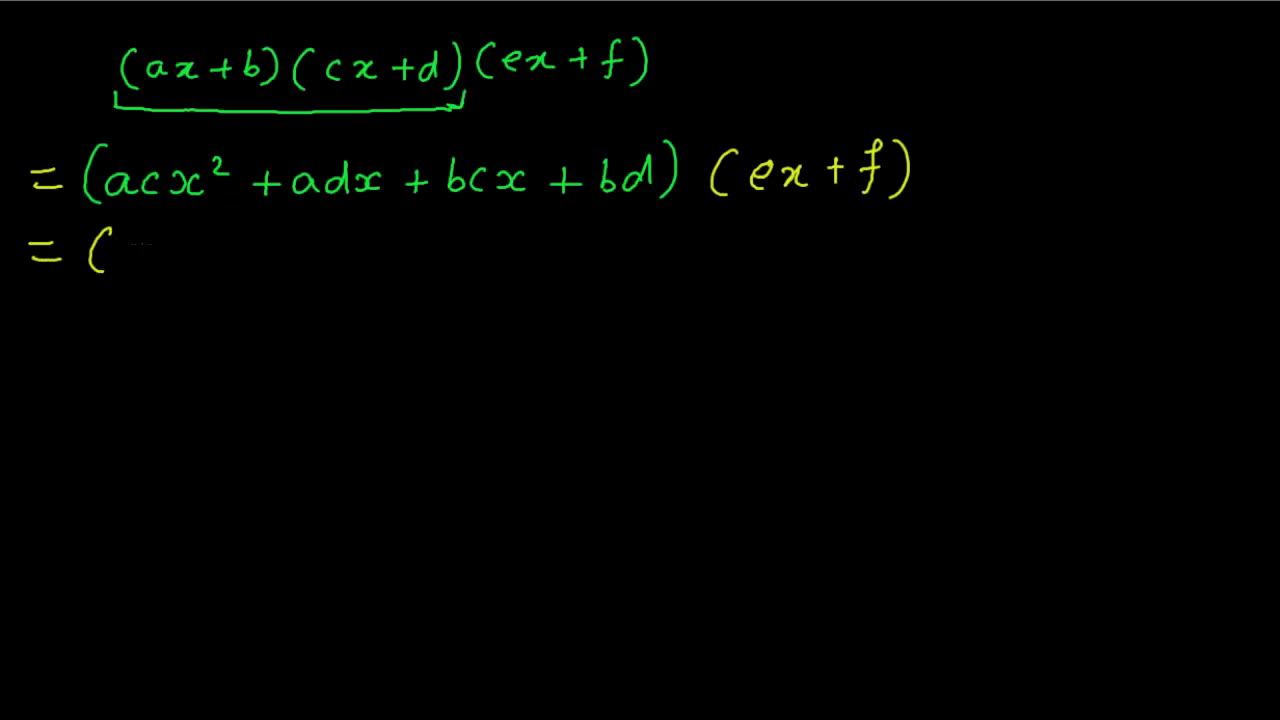 (ax+b)(cx+d)(ex+f)
= (acx² + adx + bcx + bd) (ex+f)
= (